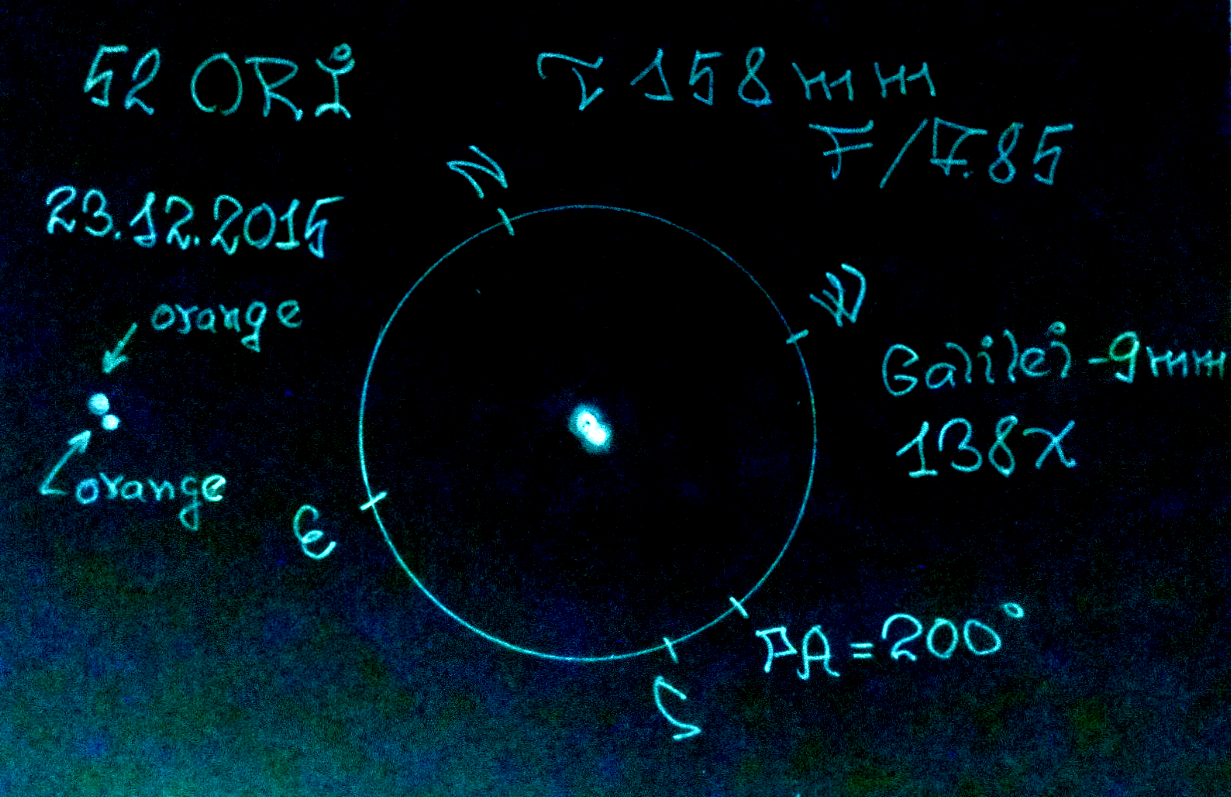 52 ORI
T 158 mm
F/7.85
23.12.2015
N
W
orange
Galilei-9mm
138x
orange
E
PA=200°
S